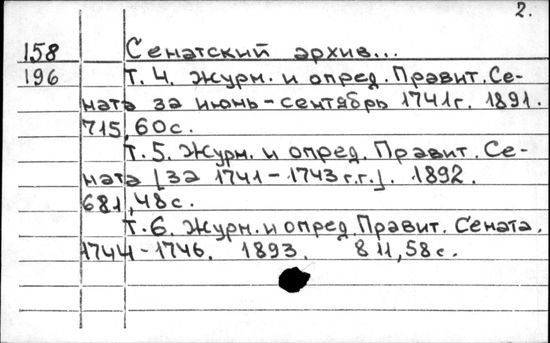 2.
158 Сенатский архив...
196 Т. 4. Журн. и опред. Правит. Се-
ната за июнь-сентябрь 1741г. 1891.
715, 60с.
Т. 5. Журн. и опред. Правит. Се-
ната [за 1741-1743 г.г.]. 1892.
681, 48с.
Т. 6. Журн. и опред. Правит. Сената.
1744-1746. 1893. 811, 58с.